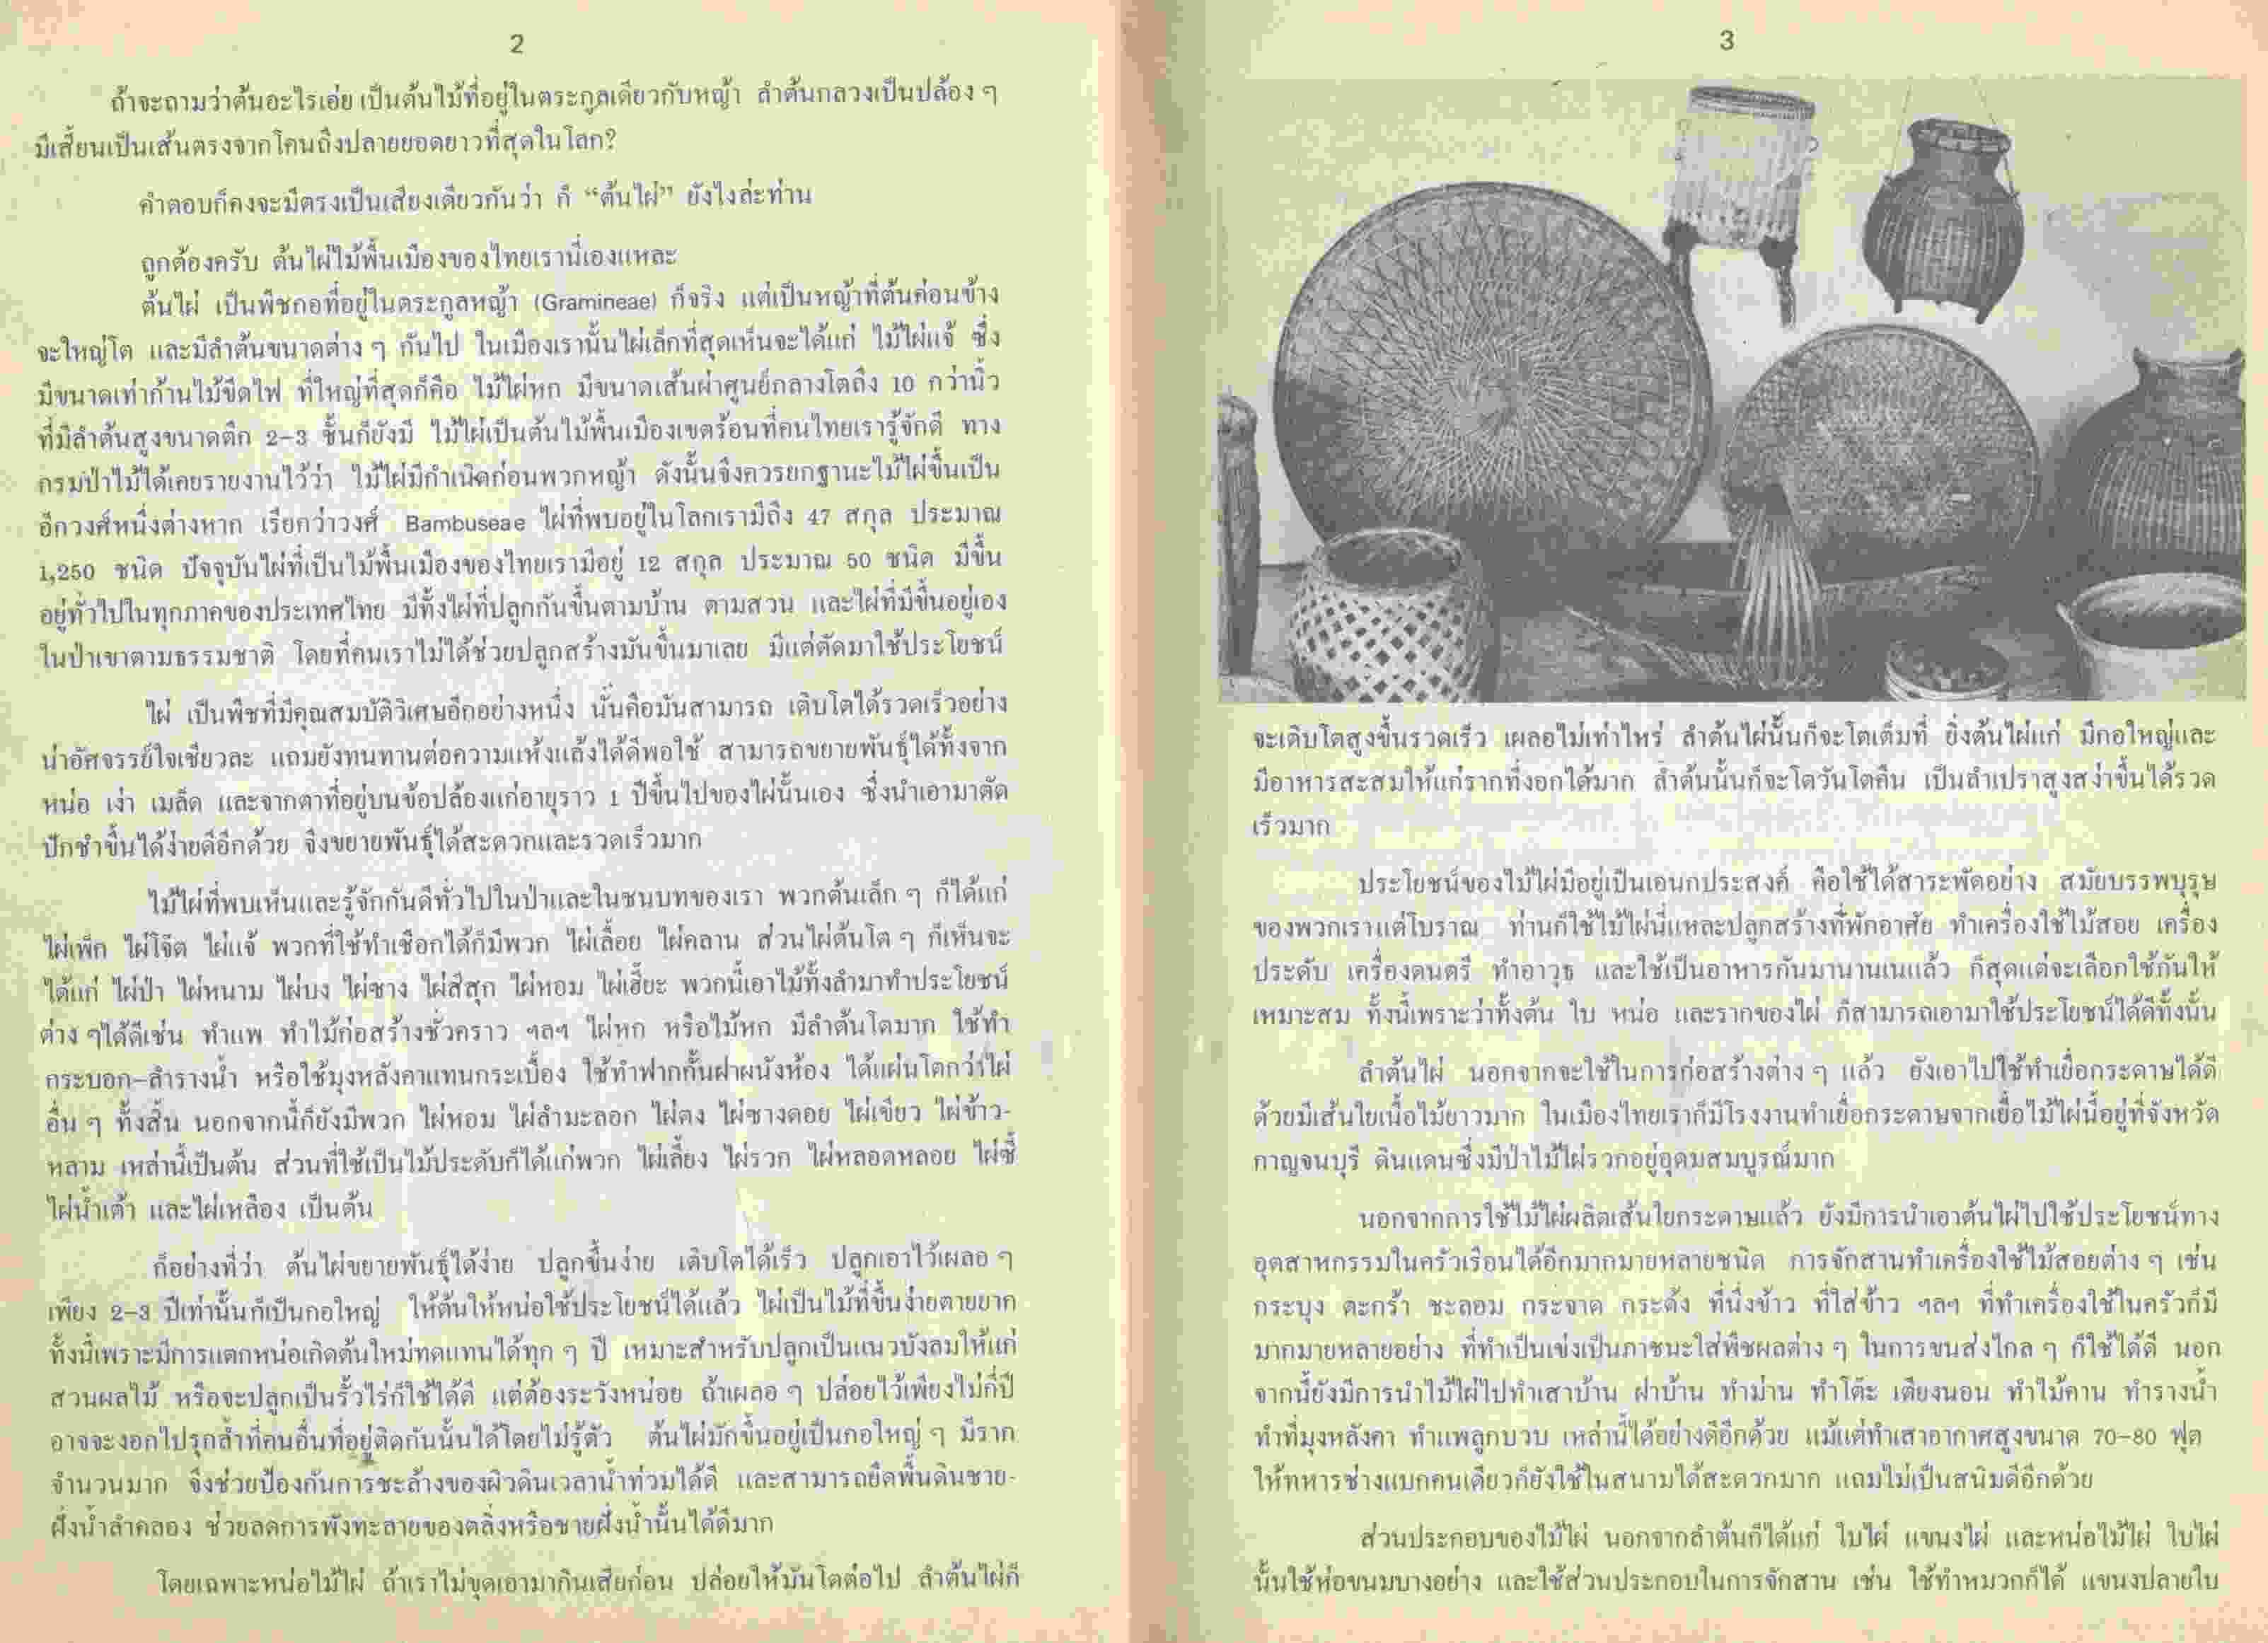 2
ถ้าจะถามว่าต้นอะไรเอ่ย เป็นต้นไม้ที่อยู่ในตระกูลเดียวกับหญ้า ลำต้นกลวงเป็นปล้อง ๆ
มีเสี้ยนเป็นเส้นตรงจากโคนถึงปลายยอดยาวที่สุดในโลก?
คำตอบก็คงจะมีตรงเป็นเสียงเดียวกันว่า ก็ “ต้นไผ่” ยังไงล่ะท่าน
ถูกต้องครับ ต้นไผ่ไม้พื้นเมืองของไทยเรานี่เองแหละ
ต้นไผ่ เป็นพืชกอที่อยู่ในตระกูลหญ้า (Gramineae) ก็จริง แต่เป็นหญ้าที่ต้นค่อนข้าง
จะใหญ่โต และมีลำต้นขนาดต่าง ๆ กันไป ในเมืองเรานั้นไผ่เล็กที่สุดเห็นจะได้แก่ ไม้ไผ่แจ้ ซึ่ง
มีขนาดเท่าก้านไม้ขีดไฟ ที่ใหญ่ที่สุดก็คือ ไม้ไผ่หก มีขนาดเส้นผ่าศูนย์กลางโตถึง 10 กว่านิ้ว
ที่มีลำต้นสูงขนาดตึก 2-3 ชั้นก็ยังมี ไม้ไผ่เป็นต้นไม้พื้นเมืองเขตร้อนที่คนไทยเรารู้จักดี ทาง
กรมป่าไม้ได้เคยรายงานไว้ว่า ไม้ไผ่มีกำเนิดก่อนพวกหญ้า ดังนั้นจึงควรยกฐานะไม้ไผ่ขึ้นเป็น
อีกวงศ์หนึ่งต่างหาก เรียกว่าวงศ์ Bambuseae ไผ่ที่พบอยู่ในโลกเรามีถึง 47 สกุล ประมาณ
1,250 ชนิด ปัจจุบันไผ่ที่เป็นไม้พื้นเมืองของไทยเรามีอยู่ 12 สกุล ประมาณ 50 ชนิด มีขึ้น
อยู่ทั่วไปในทุกภาคของประเทศไทย มีทั้งไผ่ที่ปลูกกันขึ้นตามบ้าน ตามสวน และไผ่ที่มีขึ้นอยู่เอง
ในป่าเขาตามธรรมชาติ โดยที่คนเราไม่ได้ช่วยปลูกสร้างมันขึ้นมาเลย มีแต่ตัดมาใช้ประโยชน์
ไผ่ เป็นพืชที่มีคุณสมบัติวิเศษอีกอย่างหนึ่ง นั่นคือมันสามารถ เติบโตได้รวดเร็วอย่าง
น่าอัศจรรย์ใจเชียวละ แถมยังทนทานต่อความแห้งแล้งได้ดีพอใช้ สามารถขยายพันธุ์ได้ทั้งจาก
หน่อ เง่า เมล็ด และจากตาที่อยู่บนข้อปล้องแก่อายุราว 1 ปีขึ้นไปของไผ่นั้นเอง ซึ่งนำเอามาตัด
ปักชำขึ้นได้ง่ายดีอีกด้วย จึงขยายพันธุ์ได้สะดวกและรวดเร็วมาก
ไม้ไผ่ที่พบเห็นและรู้จักกันดีทั่วไปในป่าและในชนบทของเรา พวกต้นเล็ก ๆ ก็ได้แก่
ไผ่เพ็ก ไผ่โจ๊ด ไผ่แจ้ พวกที่ใช้ทำเชือกได้ก็มีพวก ไผ่เลื้อย ไผ่คลาน ส่วนไผ่ต้นโต ๆ ก็เห็นจะ
ได้แก่ ไผ่ป่า ไผ่หนาม ไผ่บง ไผ่ซาง ไผ่สีสุก ไผ่หอม ไผ่เฮี้ยะ พวกนี้เอาไม้ทั้งลำมาทำประโยชน์
ต่าง ๆได้ดีเช่น ทำแพ ทำไม้ก่อสร้างชั่วคราว ฯลฯ ไผ่หก หรือไม้หก มีลำต้นโตมาก ใช้ทำ
กระบอก-ลำรางน้ำ หรือใช้มุงหลังคาแทนกระเบื้อง ใช้ทำฟากกั้นฝาผนังห้อง ได้แผ่นโตกว่าไผ่
อื่น ๆ ทั้งสิ้น นอกจากนี้ก็ยังมีพวก ไผ่หอม ไผ่ลำมะลอก ไผ่ตง ไผ่ซางดอย ไผ่เขียว ไผ่ข้าว-
หลาม เหล่านี้เป็นต้น ส่วนที่ใช้เป็นไม้ประดับก็ได้แก่พวก ไผ่เลี้ยง ไผ่รวก ไผ่หลอดหลอย ไผ่ซี้
ไผ่น้ำเต้า และไผ่เหลือง เป็นต้น
ก็อย่างที่ว่า ต้นไผ่ขยายพันธุ์ได้ง่าย ปลูกขึ้นง่าย เติบโตได้เร็ว ปลูกเอาไว้เผลอ ๆ
เพียง 2-3 ปีเท่านั้นก็เป็นกอใหญ่ ให้ต้นให้หน่อใช้ประโยชน์ได้แล้ว ไผ่เป็นไม้ที่ขึ้นง่ายตายยาก
ทั้งนี้เพราะมีการแตกหน่อเกิดต้นใหม่ทดแทนได้ทุก ๆ ปี เหมาะสำหรับปลูกเป็นแนวบังลมให้แก่
สวนผลไม้ หรือจะปลูกเป็นรั้วไร่ก็ใช้ได้ดี แต่ต้องระวังหน่อย ถ้าเผลอ ๆ ปล่อยไว้เพียงไม่กี่ปี
อาจจะงอกไปรุกล้ำที่คนอื่นที่อยู่ติดกันนั้นได้โดยไม่รู้ตัว ต้นไผ่มักขึ้นอยู่เป็นกอใหญ่ ๆ มีราก
จำนวนมาก จึงช่วยป้องกันการชะล้างของผิวดินเวลาน้ำท่วมได้ดี และสามารถยึดพื้นดินชาย-
ฝั่งน้ำลำคลอง ช่วยลดการพังทะลายของตลิ่งหรือชายฝั่งน้ำนั้นได้ดีมาก
โดยเฉพาะหน่อไม้ไผ่ ถ้าเราไม่ขุดเอามากินเสียก่อน ปล่อยให้มันโตต่อไป ลำต้นไผ่ก็
3
จะเติบโตสูงขึ้นรวดเร็ว เผลอไม่เท่าไหร่ ลำต้นไผ่นั้นก็จะโตเต็มที่ ยิ่งต้นไผ่แก่ มีกอใหญ่และ
มีอาหารสะสมให้แก่รากที่งอกได้มาก ลำต้นนั้นก็จะโตวันโตคืน เป็นลำเปราสูงสง่าขึ้นได้รวด
เร็วมาก
ประโยชน์ของไม้ไผ่มีอยู่เป็นเอนกประสงค์ คือใช้ได้สาระพัดอย่าง สมัยบรรพบุรุษ
ของพวกเราแต่โบราณ ท่านก็ใช้ไม้ไผ่นี่แหละปลูกสร้างที่พักอาศัย ทำเครื่องใช้ไม้สอย เครื่อง
ประดับ เครื่องดนตรี ทำอาวุธ และใช้เป็นอาหารกันมานานเนแล้ว ก็สุดแต่จะเลือกใช้กันให้
เหมาะสม ทั้งนี้เพราะว่าทั้งต้น ใบ หน่อ และรากของไผ่ ก็สามารถเอามาใช้ประโยชน์ได้ดีทั้งนั้น
ลำต้นไผ่ นอกจากจะใช้ในการก่อสร้างต่าง ๆ แล้ว ยังเอาไปใช้ทำเยื่อกระดาษได้ดี
ด้วยมีเส้นใยเนื้อไม้ยาวมาก ในเมืองไทยเราก็มีโรงงานทำเยื่อกระดาษจากเยื่อไม้ไผ่นี้อยู่ที่จังหวัด
กาญจนบุรี ดินแดนซึ่งมีป่าไม้ไผ่รวกอยู่อุดมสมบูรณ์มาก
นอกจากการใช้ไม้ไผ่ผลิตเส้นใยกระดาษแล้ว ยังมีการนำเอาต้นไผ่ไปใช้ประโยชน์ทาง
อุตสาหกรรมในครัวเรือนได้อีกมากมายหลายชนิด การจักสานทำเครื่องใช้ไม้สอยต่าง ๆ เช่น
กระบุง ตะกร้า ชะลอม กระจาด กระด้ง ที่นึ่งข้าว ที่ใส่ข้าว ฯลฯ ที่ทำเครื่องใช้ในครัวก็มี
มากมายหลายอย่าง ที่ทำเป็นเข่งเป็นภาชนะใส่พืชผลต่าง ๆ ในการขนส่งไกล ๆ ก็ใช้ได้ดี นอก
จากนี้ยังมีการนำไม้ไผ่ไปทำเสาบ้าน ฝาบ้าน ทำม่าน ทำโต๊ะ เตียงนอน ทำไม้คาน ทำรางน้ำ
ทำที่มุงหลังคา ทำแพลูกบวบ เหล่านี้ได้อย่างดีอีกด้วย แม้แต่ทำเสาอากาศสูงขนาด 70-80 ฟุต
ให้ทหารช่างแบกคนเดียวก็ยังใช้ในสนามได้สะดวกมาก แถมไม่เป็นสนิมดีอีกด้วย
ส่วนประกอบของไม้ไผ่ นอกจากลำต้นก็ได้แก่ ใบไผ่ แขนงไผ่ และหน่อไม้ไผ่ ใบไผ่
นั้นใช้ห่อขนมบางอย่าง และใช้ส่วนประกอบในการจักสาน เช่น ใช้ทำหมวกก็ได้ แขนงปลายใบ